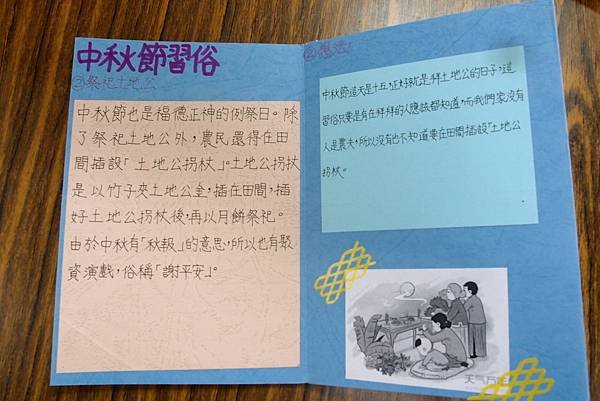 中秋節習俗
②祭祀土地公
中秋節也是福德正神的例祭日。除
了祭祀土地公外，農民還得在田
間插設「土地公拐杖」。土地公拐杖
是以竹子夾土地公金，插在田間，插
好土地公拐杖後，再以月餅祭祀。
由於中秋有「秋報」的意思，所以也有聚
資演戲，俗稱「謝平安」。
②想法：
中秋節這天是十五，正好就是拜土地公的日子，這
習俗只要是有在拜拜的人應該都知道，而我們家沒有
人是農夫，所以沒有也不知道要在田間插設「土地公
拐杖。
天气